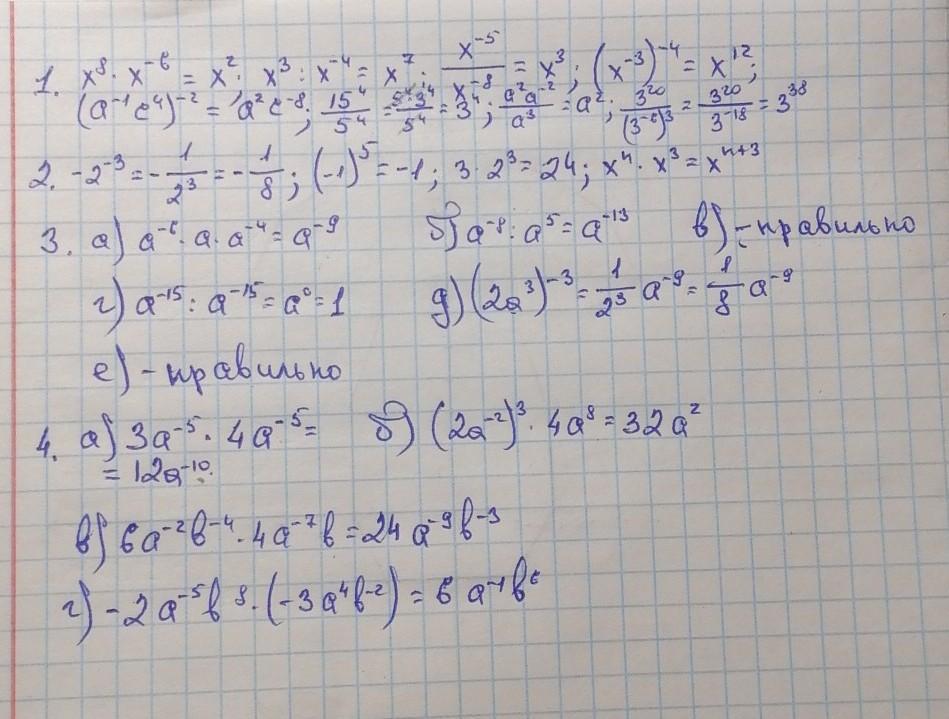 1. x⁸ · x⁻⁶ = x²; x³ : x⁻⁴ = x⁷; x⁻⁵/x⁻⁸ = x³; (x⁻³)⁻⁴ = x¹²;
(a⁻¹c⁴)⁻² = a²c⁻⁸; 15⁴/5⁴ = 5⁴·3⁴/5⁴ = 3⁴; a²a⁻²/a³ = a²; 3²⁰/(3⁻⁶)³ = 3²⁰/3⁻¹⁸ = 3³⁸
2. -2⁻³ = -1/2³ = -1/8; (-1)⁵ = -1; 3 · 2³ = 24; xⁿ · x³ = xⁿ⁺³
3. а) a⁻⁶ · a · a⁻⁴ = a⁻⁹ б) a⁻⁸ : a⁵ = a⁻¹³ в) - правильно
г) a⁻¹⁵ : a⁻¹⁵ = a⁰ = 1 д) (2a³)⁻³ = 1/2³ a⁻⁹ = 1/8 a⁻⁹
е) - правильно
4. а) 3a⁻⁵ · 4a⁻⁵ = б) (2a⁻²)³ · 4a⁸ = 32a²
= 12a⁻¹⁰
в) 6a⁻²b⁻⁴ · 4a⁻⁷b = 24a⁻⁹b⁻³
г) -2a⁻⁵b⁸ · (-3a⁴b⁻²) = 6a⁻¹b⁶